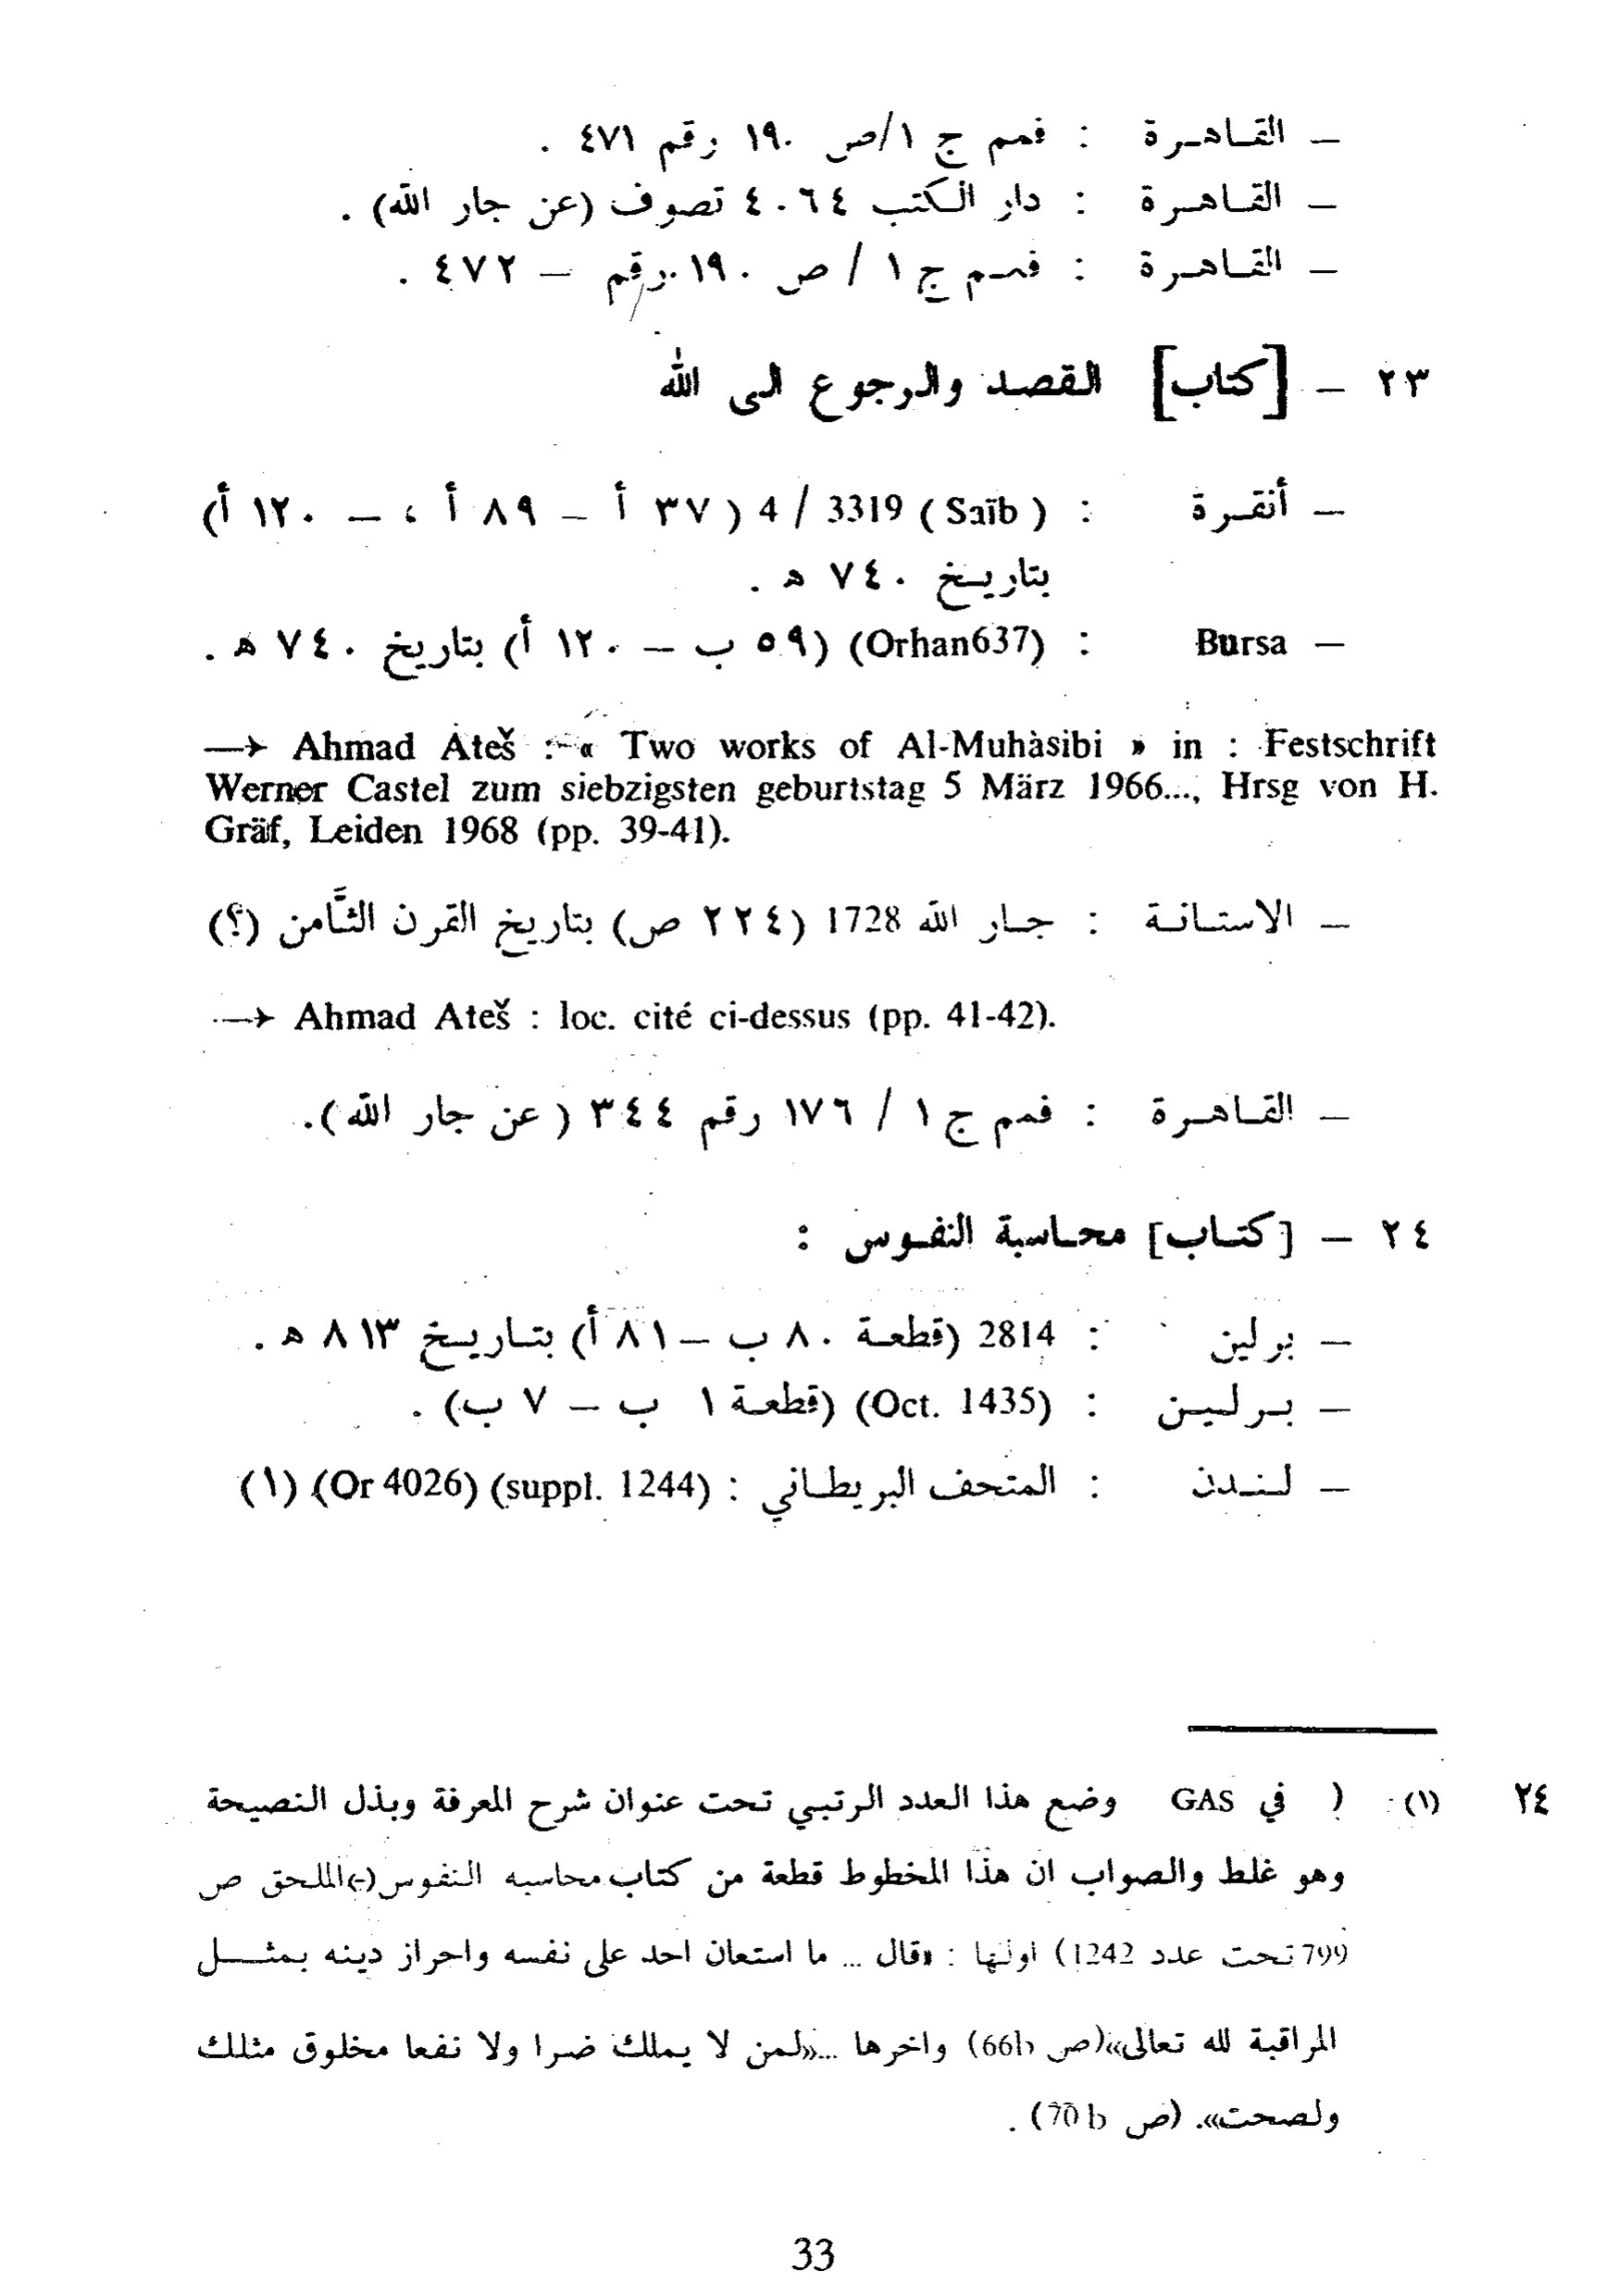 – القاهرة : فمم ج ١/ص ١٩٠ رقم ٤٧١ .
– القاهرة : دار الكتب ٤٠٦٤ تصوف (عن جار الله) .
– القاهرة : فمم ج ١ / ص ١٩٠ رقم – ٤٧٢ .
٢٣ – [كتاب] القصد والرجوع الى الله
– أنقرة : ( Saïb ) 3319 / 4 ( ٣٧ أ – ٨٩ أ ، – ١٢٠ أ)
بتاريخ ٧٤٠ ه .
– Bursa : (Orhan637) (٥٩ ب – ١٢٠ أ) بتاريخ ٧٤٠ ه .
→ Ahmad Ateš : « Two works of Al-Muhàsibi » in : Festschrift
Werner Castel zum siebzigsten geburtstag 5 März 1966..., Hrsg von H.
Gräf, Leiden 1968 (pp. 39-41).
– الاستانة : جار الله 1728 (٢٢٤ ص) بتاريخ القرن الثَّامن (؟)
→ Ahmad Ateš : loc. cité ci-dessus (pp. 41-42).
– القاهرة : فمم ج ١ / ١٧٦ رقم ٣٤٤ ( عن جار الله ).
٢٤ – [كتاب] محاسبة النفوس :
– برلين : 2814 (قطعة ٨٠ ب – ٨١ أ) بتاريخ ٨١٣ ه .
– برلين : (Oct. 1435) (قطعة ١ ب – ٧ ب) .
– لندن : المتحف البريطاني : (suppl. 1244) (Or 4026) (١)
٢٤ (١) ( في GAS وضع هذا العدد الرتبي تحت عنوان شرح المعرفة وبذل النصيحة
وهو غلط والصواب ان هذا المخطوط قطعة من كتاب محاسبه النفوس(-)الملحق ص
799 تحت عدد 1242) اولها : «قال ... ما استعان احد على نفسه واحراز دينه بمثل
المراقبة لله تعالى»(ص 66b) واخرها ...«لمن لا يملك ضرا ولا نفعا مخلوق مثلك
ولصحت». (ص 70b) .
33